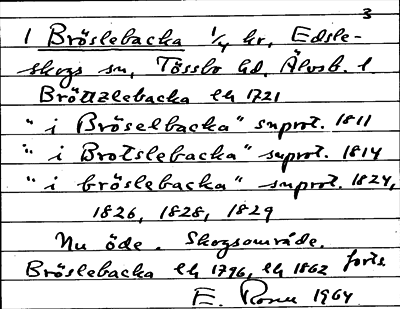 3
1 Bröslebacka 1/4 hr, Edsle-
skogs sn, Tössbo hd, Älvsb. l
Bröttzlebacka lh 1721
"i Bröselbacka" snprot. 1811
"i Brotslebacka" snprot. 1814
"i bröslebacka" snprot. 1824,
1826, 1828, 1829
Nu öde. Skogsområde.
Bröslebacka lh 1796, lh 1862 forts
E. 1964